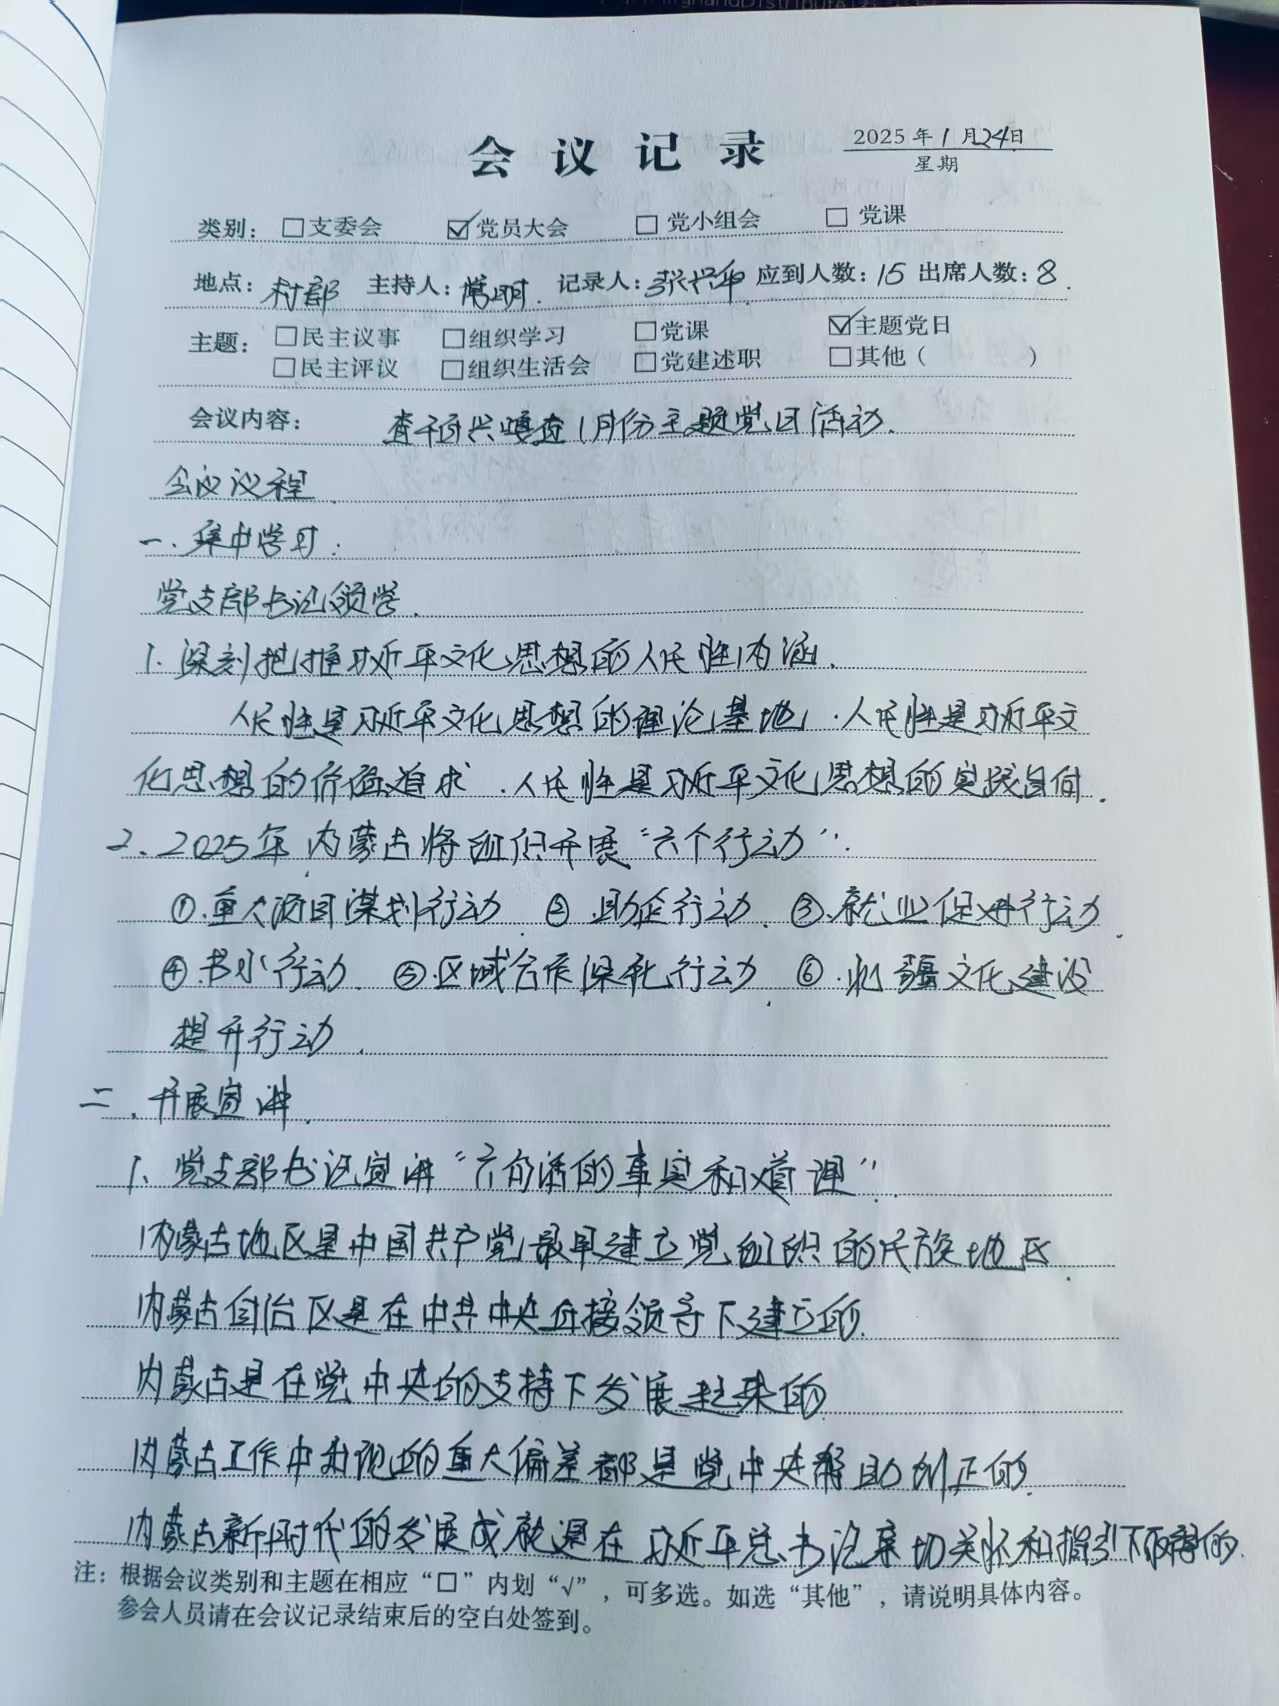 会议记录
2025年1月24日
星期
类别：□支委会 ☑党员大会 □党小组会 □党课
地点：村部 主持人：常明 记录人：张 应到人数：15 出席人数：8.
主题：□民主议事 □组织学习 □党课 ☑主题党日
□民主评议 □组织生活会 □党建述职 □其他（ ）
会议内容：查干百兴嘎查1月份主题党日活动.
会议议程
一、集中学习：
党支部书记领学.
1. 深刻把握习近平文化思想的人民性内涵.
人民性是习近平文化思想的理论基地，人民性是习近平文
化思想的价值追求，人民性是习近平文化思想的实践自向.
2、2025年内蒙古将组织开展“六个行动”.
①.重大项目谋划行动 ② 助企行动 ③.就业促进行动
④.书水行动 ⑤.区域合作深化行动 ⑥.北疆文化建设
提升行动.
二、开展宣讲.
1、党支部书记宣讲“六句话的事实和道理”.
内蒙古地区是中国共产党最早建立党组织的民族地区.
内蒙古自治区是在中共中央直接领导下建立的.
内蒙古是在党中央的支持下发展起来的
内蒙古工作中出现的重大偏差都是党中央帮助纠正的.
内蒙古新时代的发展成就是在习近平总书记亲切关怀和指引下取得的.
注：根据会议类别和主题在相应“□”内划“√”，可多选。如选“其他”，请说明具体内容。
参会人员请在会议记录结束后的空白处签到。